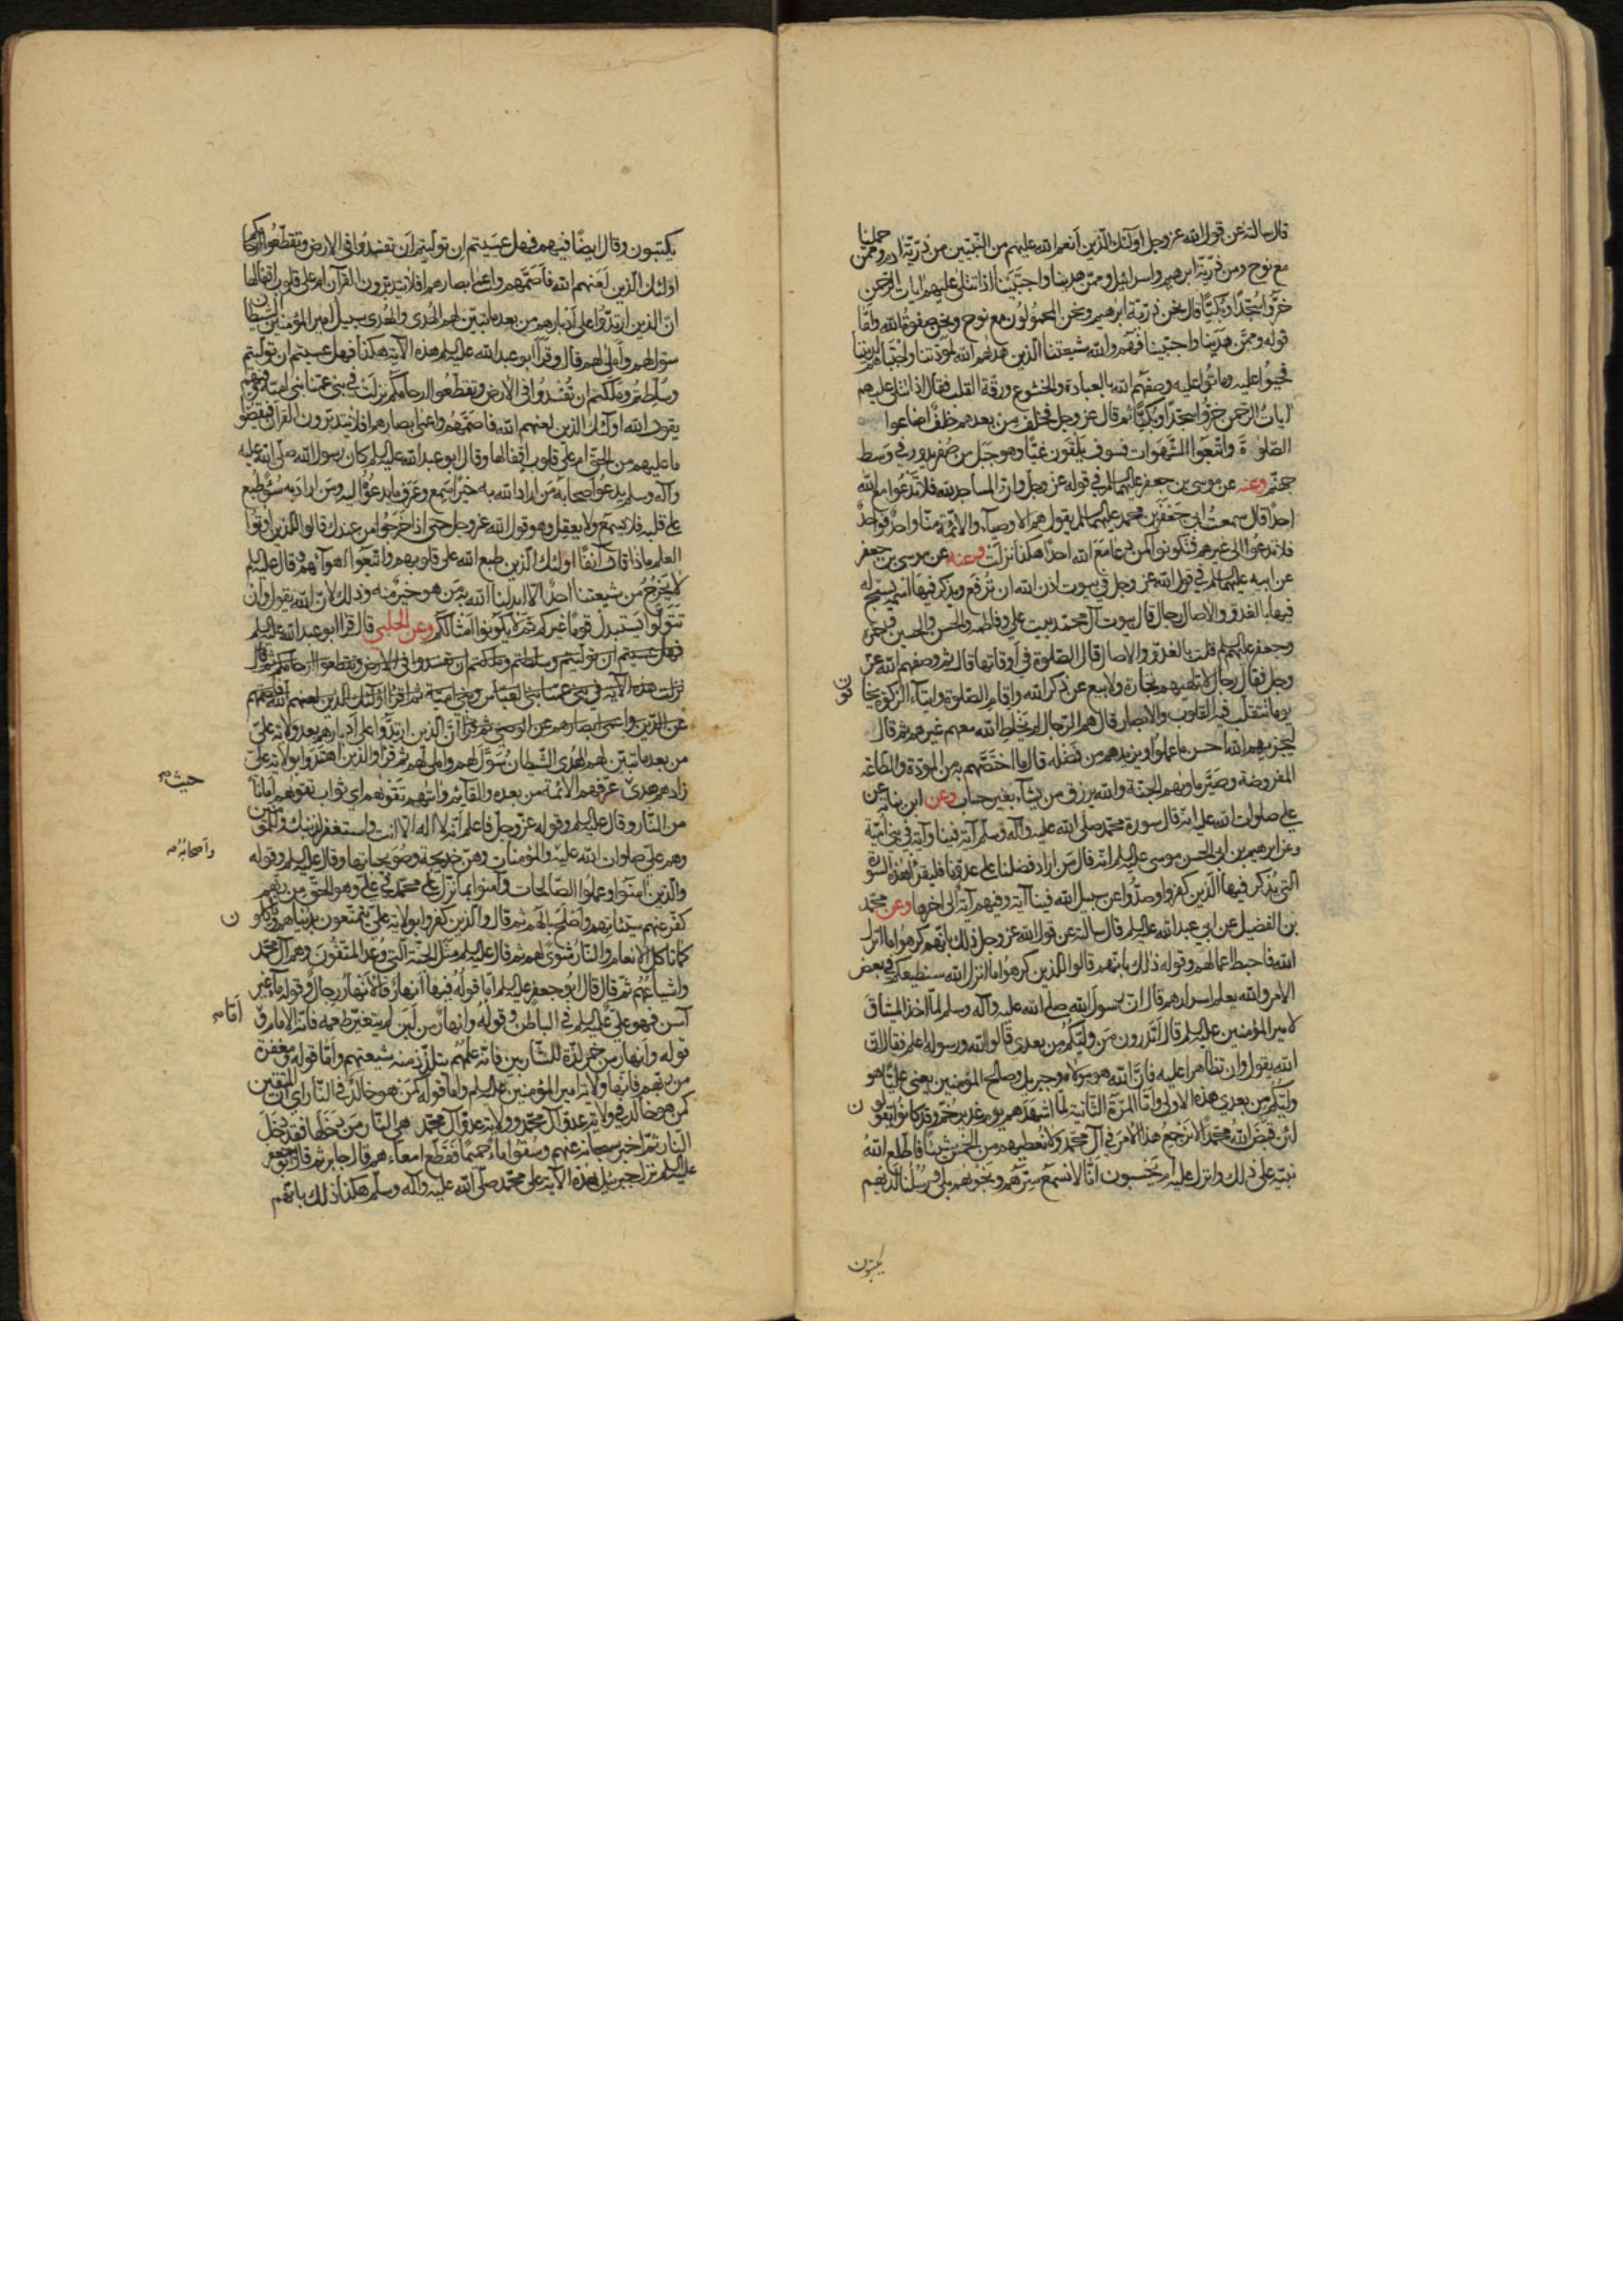 قال سالته عن قول الله عز وجل اولئك الذين انعم الله عليهم من النبيين من ذرية ادم وممن حملنا
مع نوح ومن ذرية ابرهيم واسرائيل وممن هدينا واجتبينا اذا تتلى عليهم ايات الرحمن
خروا سجدا وبكيا قال نحن ذرية ابرهيم ونحن المحمولون مع نوح ونحن صفوة الله واما
قوله وممن هدينا واجتبينا فهم والله شيعتنا الذين هداهم الله لمودتنا واجتباهم لديننا
فحيوا عليه وماتوا عليه وصفهم الله بالعبادة والخشوع ورقة القلب فقال اذا تتلى عليهم
ايات الرحمن خروا سجدا وبكيا ثم قال عز وجل فخلف من بعدهم خلف اضاعوا
الصلوة واتبعوا الشهوات فسوف يلقون غيا وهو جبل من صفر يدور في وسط
جهنم وعنه عن موسى بن جعفر عليهما السلم في قوله عز وجل وان المساجد لله فلا تدعوا مع الله
احدا قال سمعت ابي جعفر بن محمد عليهما السلم يقول هم الاوصياء والائمة منا واحد فواحد
فلا تدعوا الى غيرهم فتكونوا كمن دعا مع الله احدا هكذا نزلت وعنه عن موسى بن جعفر
عن ابيه عليهما السلم في قول الله عز وجل في بيوت اذن الله ان ترفع ويذكر فيها اسمه يسبح له
فيها بالغدو والاصال رجال قال بيوت آل محمد بيت علي وفاطمة والحسن والحسين وحمزة
وجعفر عليهم السلم قلت بالغدو والاصال قال الصلوة في اوقاتها قال ثم وصفهم الله عز
وجل فقال رجال لا تلهيهم تجارة ولا بيع عن ذكر الله واقام الصلوة وايتاء الزكوة يخافون
يوما تتقلب فيه القلوب والابصار قال هم الرجال لم يخلط الله معهم غيرهم ثم قال
ليجزيهم الله احسن ما عملوا ويزيدهم من فضله قال ما اختصهم به من المودة والطاعة
المفروضة وصير ماويهم الجنة والله يرزق من يشاء بغير حساب وعن ابن نباتة عن
علي صلوات الله عليه انه قال سورة محمد صلى الله عليه وآله وسلم آية فينا وآية في بني امية
وعن ابرهيم بن ابي الحسن موسى عليه السلم انه قال من اراد فضلنا على عدونا فليقرأ هذه السورة
التي يذكر فيها الذين كفروا وصدوا عن سبيل الله فينا آية وفيهم آية الى اخرها وعن محمد
بن الفضيل عن ابي عبد الله عليه السلم قال سالته عن قول الله عز وجل ذلك بانهم كرهوا ما انزل
الله فاحبط اعمالهم وقوله ذلك بانهم قالوا للذين كرهوا ما انزل الله سنطيعكم في بعض
الامر والله يعلم اسرارهم قال ان رسول الله صلى الله عليه وآله وسلم لما اخذ الميثاق
لامير المؤمنين عليه السلم قال اتدرون من وليكم من بعدي قالوا الله ورسوله اعلم فقال ان
الله يقول وان تظاهرا عليه فان الله هو مولاه وجبريل وصالح المؤمنين يعني عليا هو
وليكم من بعدي هذه الاولى واما المرة الثانية لما اشهدهم يوم غدير خم وقد كانوا يقولون
لئن قبض الله محمدا لا نرجع هذا الامر في آل محمد ولا نعطيهم من الخمس شيئا فاطلع الله
نبيه على ذلك وانزل عليه ام يحسبون انا لا نسمع سرهم ونجويهم بلى ورسلنا لديهم
يكتبون
يكتبون وقال ايضا فيهم فهل عسيتم ان توليتم ان تفسدوا في الارض وتقطعوا ارحامكم
اولئك الذين لعنهم الله فاصمهم واعمى ابصارهم افلا يتدبرون القرآن ام على قلوب اقفالها
ان الذين ارتدوا على ادبارهم من بعد ما تبين لهم الهدى والهدى سبيل امير المؤمنين الشيطان
سول لهم واملى لهم قال وقرأ ابو عبد الله عليه السلم هذه الآية هكذا فهل عسيتم ان توليتم
وسلطتم وملكتم ان تفسدوا في الارض وتقطعوا ارحامكم نزلت في بني عمنا بني امية وفيهم
يقول الله اولئك الذين لعنهم الله فاصمهم واعمى ابصارهم افلا يتدبرون القرآن فيقضوا
ما عليهم من الحق ام على قلوب اقفالها وقال ابو عبد الله عليه السلم كان رسول الله صلى الله عليه
وآله وسلم يدعو اصحابه من اراد الله به خيرا سمع وعرف ما يدعوه اليه ومن اراد به سوء طبع
على قلبه فلا يسمع ولا يعقل وهو قول الله عز وجل حتى اذا خرجوا من عندك قالوا للذين اوتوا
العلم ماذا قال آنفا اولئك الذين طبع الله على قلوبهم واتبعوا اهوآئهم وقال عليه السلم
لا يخرج من شيعتنا احد الا ابدلنا الله به من هو خير منه وذلك لان الله يقول وان
تتولوا يستبدل قوما غيركم ثم لا يكونوا امثالكم وعن الحلبي قال قرأ ابو عبد الله عليه السلم
فهل عسيتم ان توليتم وسلطتم وملكتم ان تفسدوا في الارض وتقطعوا ارحامكم ثم قال
نزلت هذه الآية في بني عمنا بني العباس وبني امية ثم اقرأ اولئك الذين لعنهم الله فاصمهم
عن الدين واعمى ابصارهم عن الوصي ثم قرأ ان الذين ارتدوا على ادبارهم بعد ولاية علي
من بعد ما تبين لهم الهدى الشيطان سول لهم واملى لهم ثم قرأ والذين اهتدوا بولاية علي
زادهم هدى عرفهم الائمة من بعده والقائم وآتيهم تقويهم اي ثواب تقويهم امانا
حيث
من النار وقال عليه السلم وقوله عز وجل فاعلم انه لا اله الا انت واستغفر لذنبك وللمؤمنين
وهم علي صلوات الله عليه والمؤمنات وهن خديجة وصويحباتها وقال عليه السلم وقوله
واصحابه
والذين امنوا وعملوا الصالحات وآمنوا بما نزل على محمد في علي وهو الحق من ربهم
كفر عنهم سيئاتهم واصلح بالهم ثم قال والذين كفروا بولاية علي يتمتعون بدنياهم ويأكلون
كما تاكل الانعام والنار مثوى لهم ثم قال عليه السلم مثل الجنة التي وعد المتقون وهم آل محمد
واشياعهم ثم قال قال ابو جعفر عليه السلم اما قوله فيها انهار فالانهار رجال وقوله ماء غير
آسن فهو علي عليه السلم في الباطن وقوله وانهار من لبن لم يتغير طعمه فانه الامام و
اما
قوله وانهار من خمر لذة للشاربين فانه علمهم يتلذذ منه شيعتهم واما قوله ومغفرة
من ربهم فانها ولاية امير المؤمنين عليه السلم واما قوله كمن هو خالد في النار اي ان المتقين
كمن هو خالد في ولاية عدو آل محمد وولاية عدو آل محمد هي النار من دخلها فقد دخل
النار ثم اخبر سبحانه عنهم وسقوا ماء حميما فقطع امعاءهم قال جابر ثم قال ابو جعفر
عليه السلم نزل جبرئيل بهذه الآية على محمد صلى الله عليه وآله وسلم هكذا ذلك بانهم